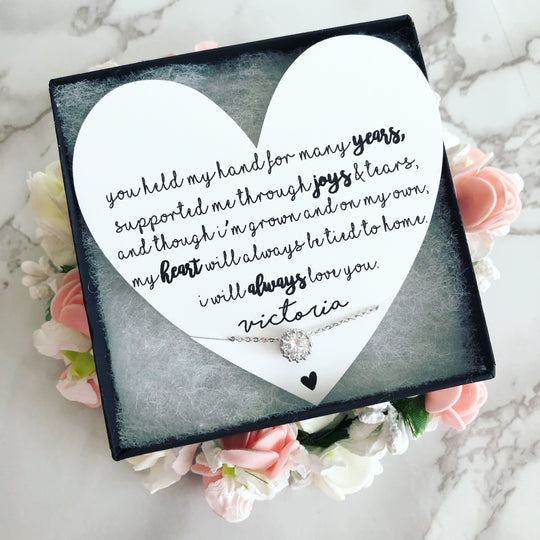 you held my hand for many years,
supported me through joys & tears,
and though i'm grown and on my own,
my heart will always be tied to home.
i will always love you.
victoria